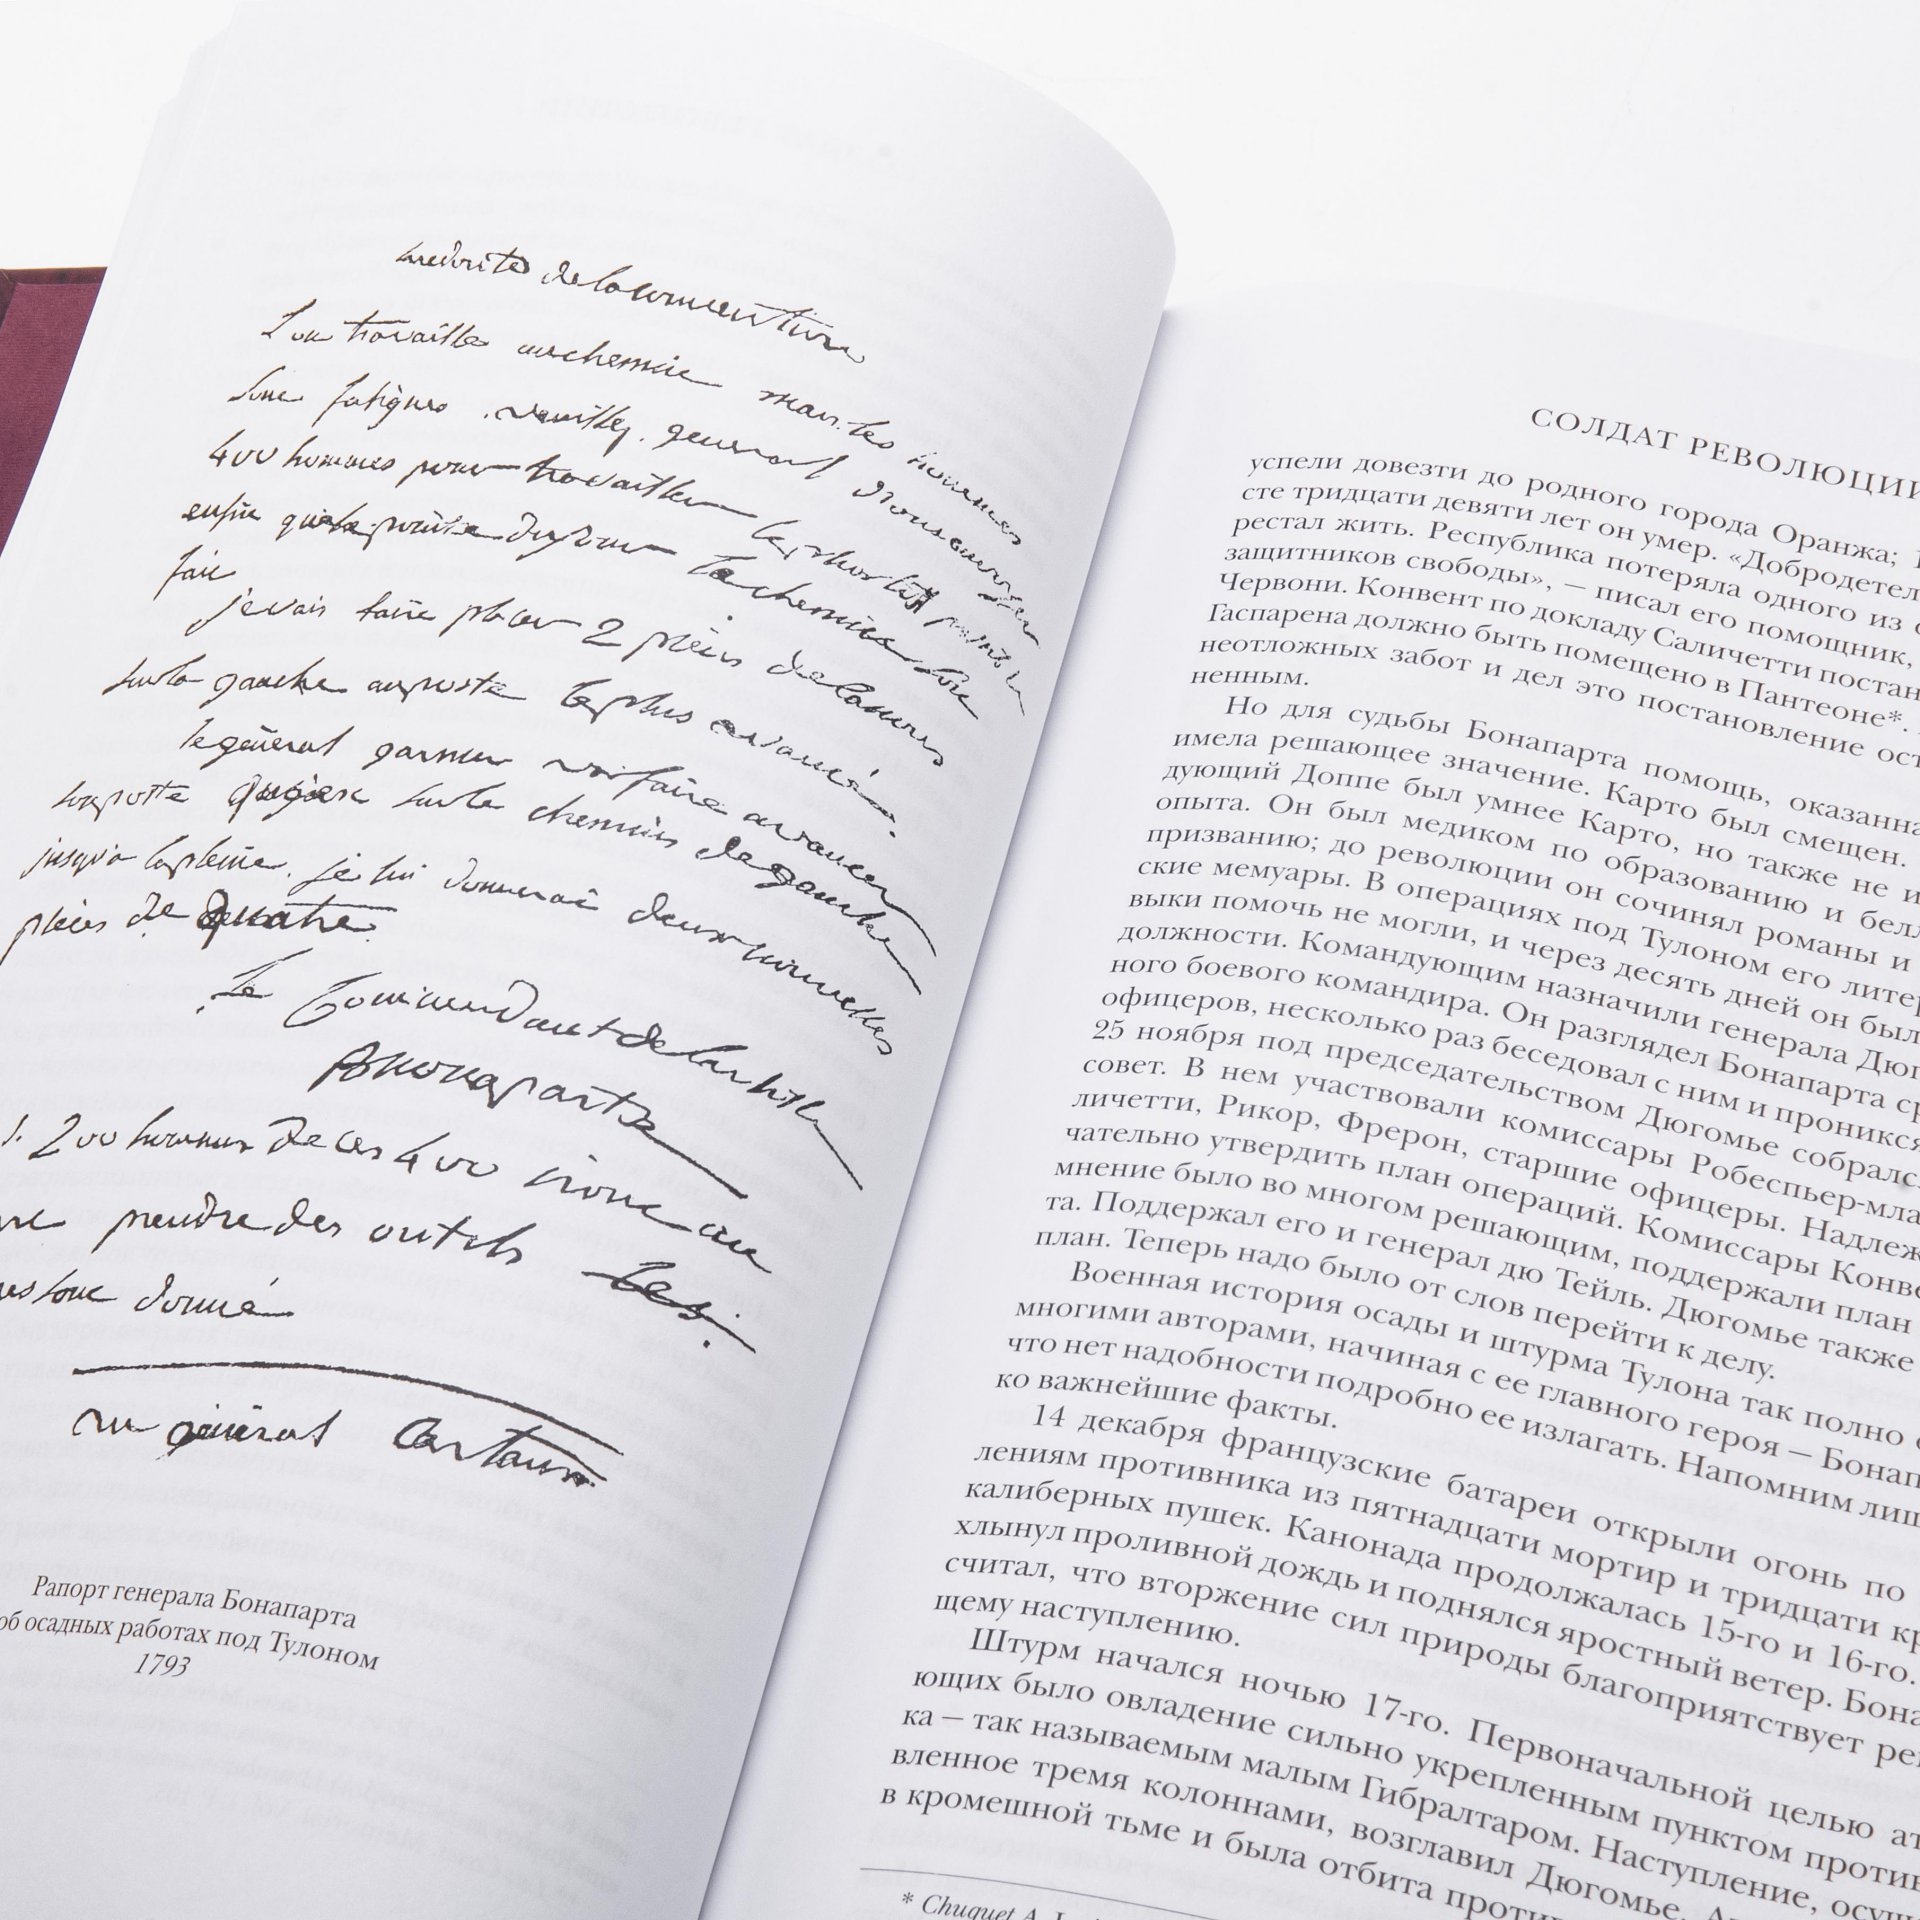 de la convention
L'on travaille au chemin mais les hommes
sont fatigués. veuillez, general, nous envoyer
400 hommes pour travailler
faie
je vais faire placer 2 pièces de canons
sur la gauche au poste le plus avancé.
le général garnier va faire avancer
son poste sur le chemin de gauche
jusqu'a la pleine. je lui donnerai deux nouvelles
pièces de quatre.
Le Commandant de l'artille
Buonaparte
200 hommes de ces 400 iront au
prendre des outels
donné
au général Cartaux
Рапорт генерала Бонапарта
об осадных работах под Тулоном
1793
СОЛДАТ РЕВОЛЮЦИИ
успели довезти до родного города Оранжа;
сте тридцати девяти лет он умер. «Добродетел
рестал жить. Республика потеряла одного из
защитников свободы», – писал его помощник,
Червони. Конвент по докладу Саличетти постан
Гаспарена должно быть помещено в Пантеоне*.
неотложных забот и дел это постановление ост
ненным.
Но для судьбы Бонапарта помощь, оказанна
имела решающее значение. Карто был смещен.
дующий Доппе был умнее Карто, но также не и
опыта. Он был медиком по образованию и белл
призванию; до революции он сочинял романы и
ские мемуары. В операциях под Тулоном его литер
выки помочь не могли, и через десять дней он был
должности. Командующим назначили генерала Дюг
ного боевого командира. Он разглядел Бонапарта ср
офицеров, несколько раз беседовал с ним и проникся
25 ноября под председательством Дюгомье собрался
совет. В нем участвовали комиссары Робеспьер-мла
личетти, Рикор, Фрерон, старшие офицеры. Надлеж
чательно утвердить план операций. Комиссары Конве
мнение было во многом решающим, поддержали план
та. Поддержал его и генерал дю Тейль. Дюгомье также
план. Теперь надо было от слов перейти к делу.
Военная история осады и штурма Тулона так полно
многими авторами, начиная с ее главного героя – Бонап
что нет надобности подробно ее излагать. Напомним лиш
ко важнейшие факты.
14 декабря французские батареи открыли огонь по
лениям противника из пятнадцати мортир и тридцати кр
калиберных пушек. Канонада продолжалась 15-го и 16-го.
хлынул проливной дождь и поднялся яростный ветер. Бона
считал, что вторжение сил природы благоприятствует ре
щему наступлению.
Штурм начался ночью 17-го. Первоначальной целью ат
ющих было овладение сильно укрепленным пунктом против
ка – так называемым малым Гибралтаром. Наступление, осущ
вленное тремя колоннами, возглавил Дюгомье.
в кромешной тьме и была отбита проти
* Chuquet A.